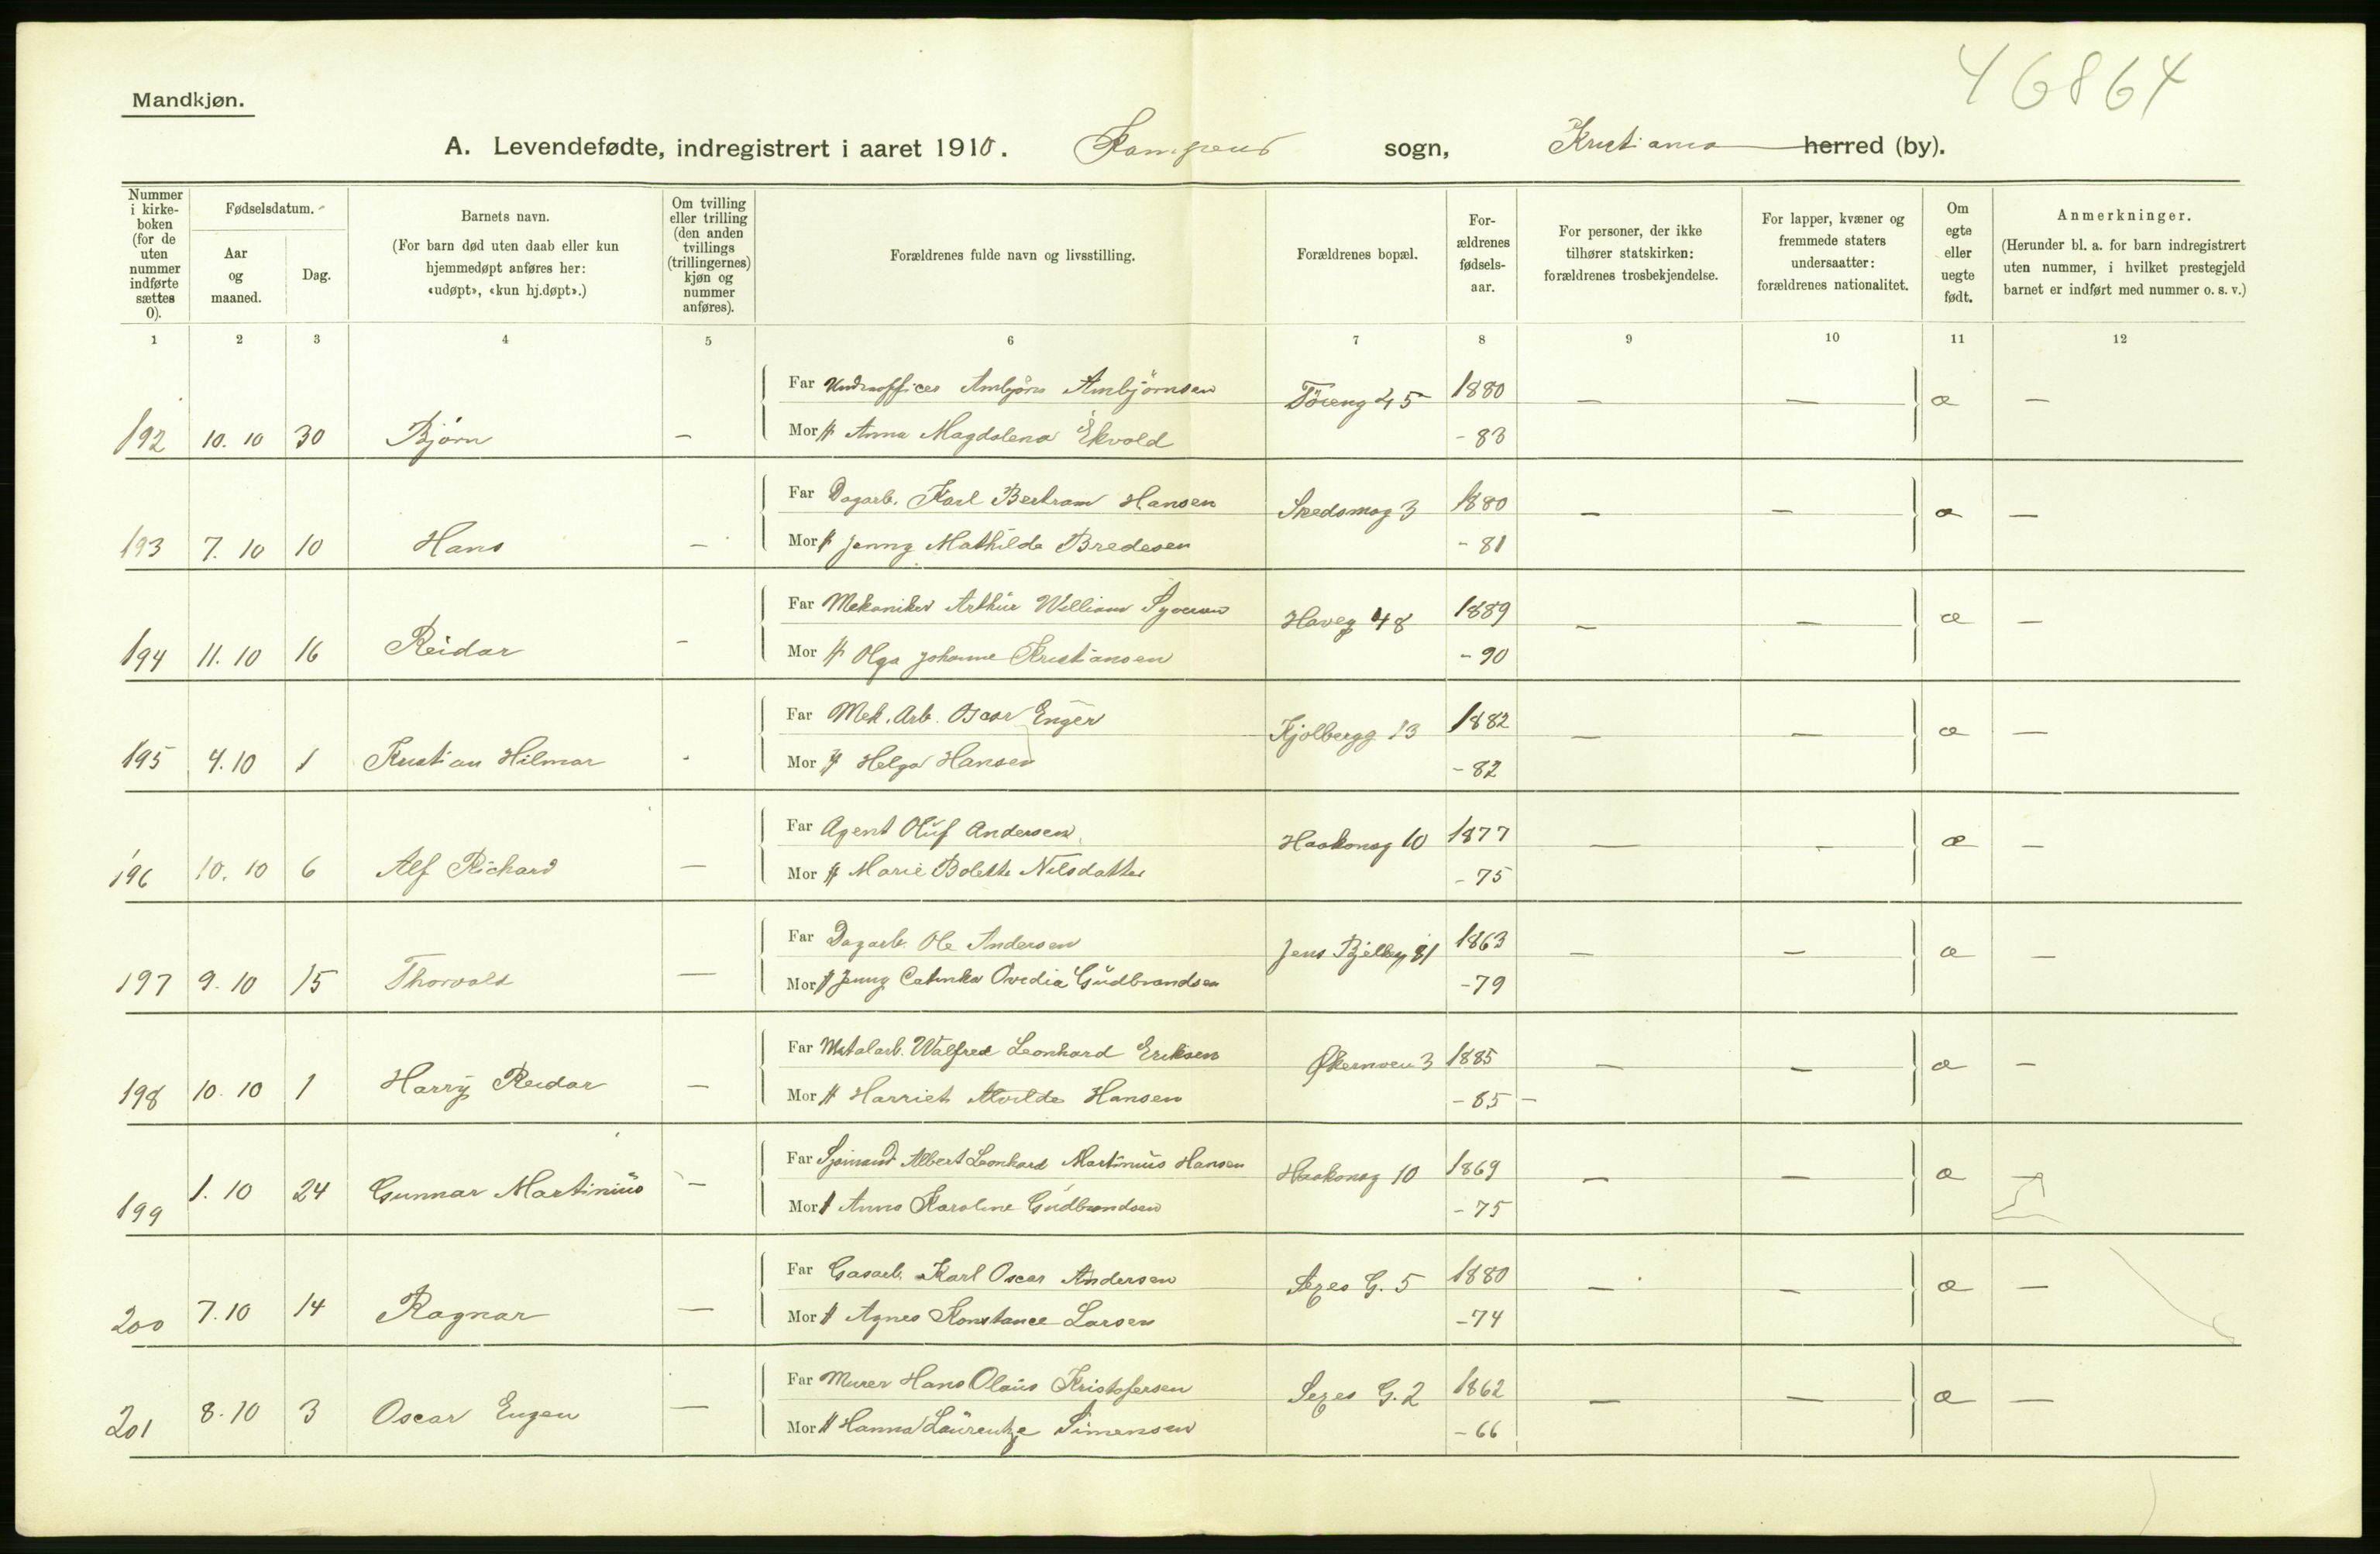 46864
Mandkjøn.
A. Levendefødte, indregistrert i aaret 1910. Kampens sogn, Kristiania herred (by).
Nummer i kirke-boken (for de uten nummer indførte sættes 0).
Fødselsdatum.
Aar og maaned.
Dag.
Barnets navn.
(For barn død uten daab eller kun hjemmedøpt anføres her: «udøpt», «kun hj.døpt».)
Om tvilling eller trilling (den anden tvillings (trillingernes) kjøn og nummer anføres).
Forældrenes fulde navn og livsstilling.
Forældrenes bopæl.
For-ældrenes fødsels-aar.
For personer, der ikke tilhører statskirken: forældrenes trosbekjendelse.
For lapper, kvæner og fremmede staters undersaatter: forældrenes nationalitet.
Om egte eller uegte født.
Anmerkninger.
(Herunder bl. a. for barn indregistrert uten nummer, i hvilket prestegjeld barnet er indført med nummer o. s. v.)
1 2 3 4 5 6 7 8 9 10 11 12
Far Underofficer Ambjörn Ambjörnsen Töieng 45 1880 — — æ —
192 10. 10 30 Björn — Mor H Anna Magdalena Ekvold - 83
Far Dagarb. Karl Bertram Hansen Skedsmog 3 1880 — — æ —
193 7. 10 10 Hans — Mor H Jenny Mathilde Bredesen - 81
Far Mekaniker Arthur William Haveg 48 1889 — — æ —
194 11. 10 16 Reidar — Mor H Olga Johanne Kristiansen - 90
Far Mek. Arb. Oscar Enger Kjölbergg 13 1882 — — æ —
195 4. 10 1 Kristian Hilmar - Mor H Helga Hansen - 82
Far Agent Oluf Andersen Haakonsg 10 1877 — — æ —
196 10. 10 6 Alf Richard — Mor H Marie Bolette Nilsdatter - 75
Far Dagarb. Ole Andersen Jens Bjelkeg 81 1863 — — æ —
197 9. 10 15 Thorvald — Mor H Jenny Catinka Ovedia Gudbrandsen - 79
Far Metalarb. Walfred Leonhard Eriksen Økernvei 3 1885 — — æ —
198 10. 10 1 Harry Reidar — Mor H Harriet Alvilde Hansen - 85 -
Far Sjömand Albert Leonhard Martinius Hansen Haakonsg 10 1869 — — æ —
199 1. 10 24 Gunnar Martinius — Mor H Anna Karoline Gudbrandsen - 75
Far Gasarb. Karl Oscar Andersen Sexes G. 5 1880 — — æ —
200 7. 10 14 Ragnar — Mor H Agnes Konstance Larsen - 74
Far Murer Hans Olaus Kristofersen Sexes G. 2 1862 — — æ —
201 8. 10 3 Oscar Eugen — Mor H Hanna Laurentze Simensen - 66